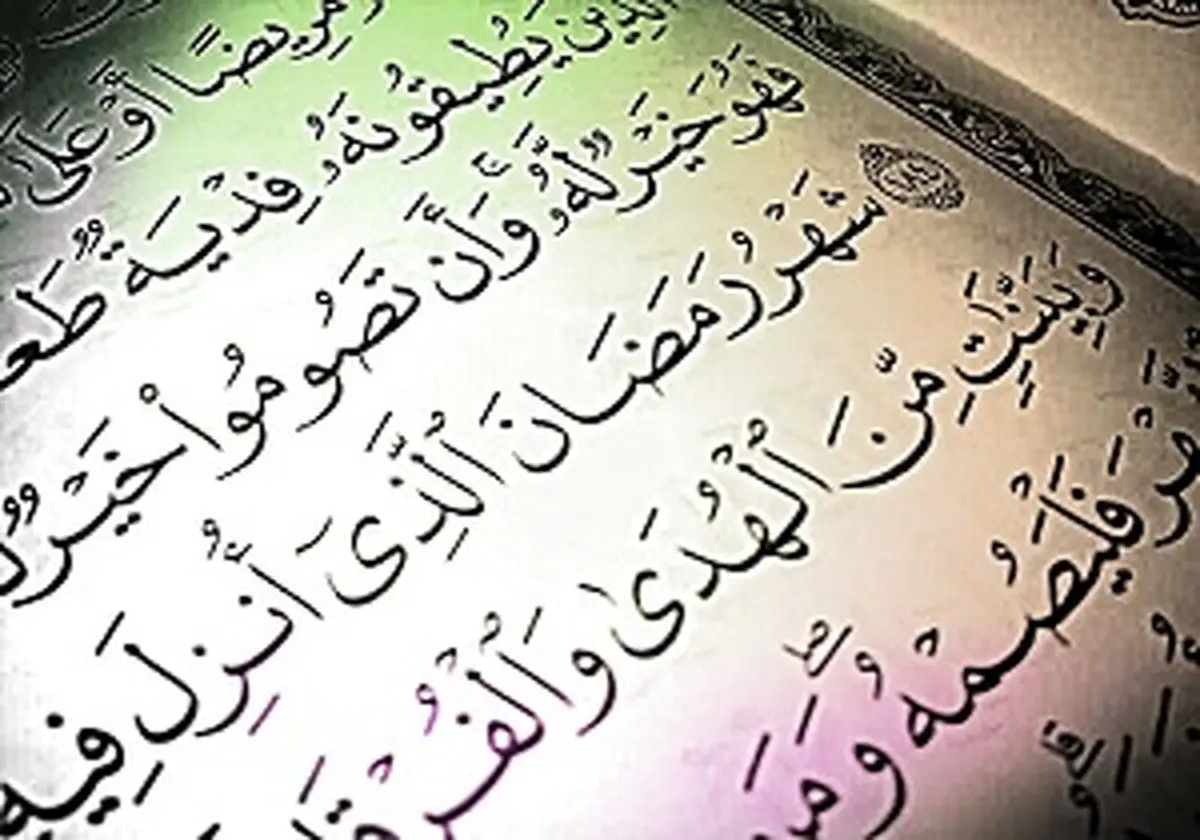 مَّرِيضًا أَوْ عَلَىٰ
ٱلَّذِينَ يُطِيقُونَهُۥ فِدْيَةٌ
فَهُوَ خَيْرٌ لَّهُۥ وَأَن تَصُومُوا۟ خَيْرٌ
شَهْرُ رَمَضَانَ ٱلَّذِىٓ أُنزِلَ فِيهِ
وَبَيِّنَٰتٍ مِّنَ ٱلْهُدَىٰ وَٱلْفُرْقَا
فَلْيَصُمْهُ وَمَن